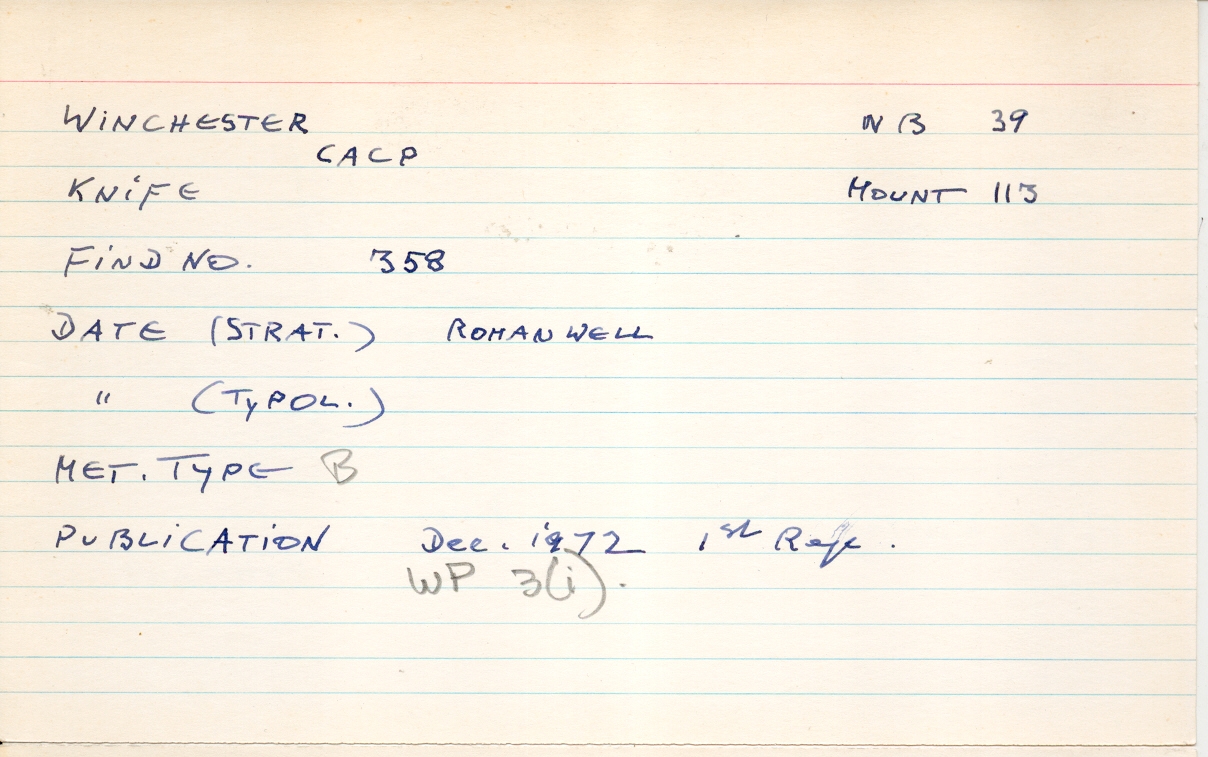 WINCHESTER NB 39
CACP
KNIFE MOUNT 113
FIND NO. 358
DATE (STRAT.) ROMAN WELL
" (TYPOL.)
MET. TYPE B
PUBLICATION Dec. 1972 1st
WP 3(i).